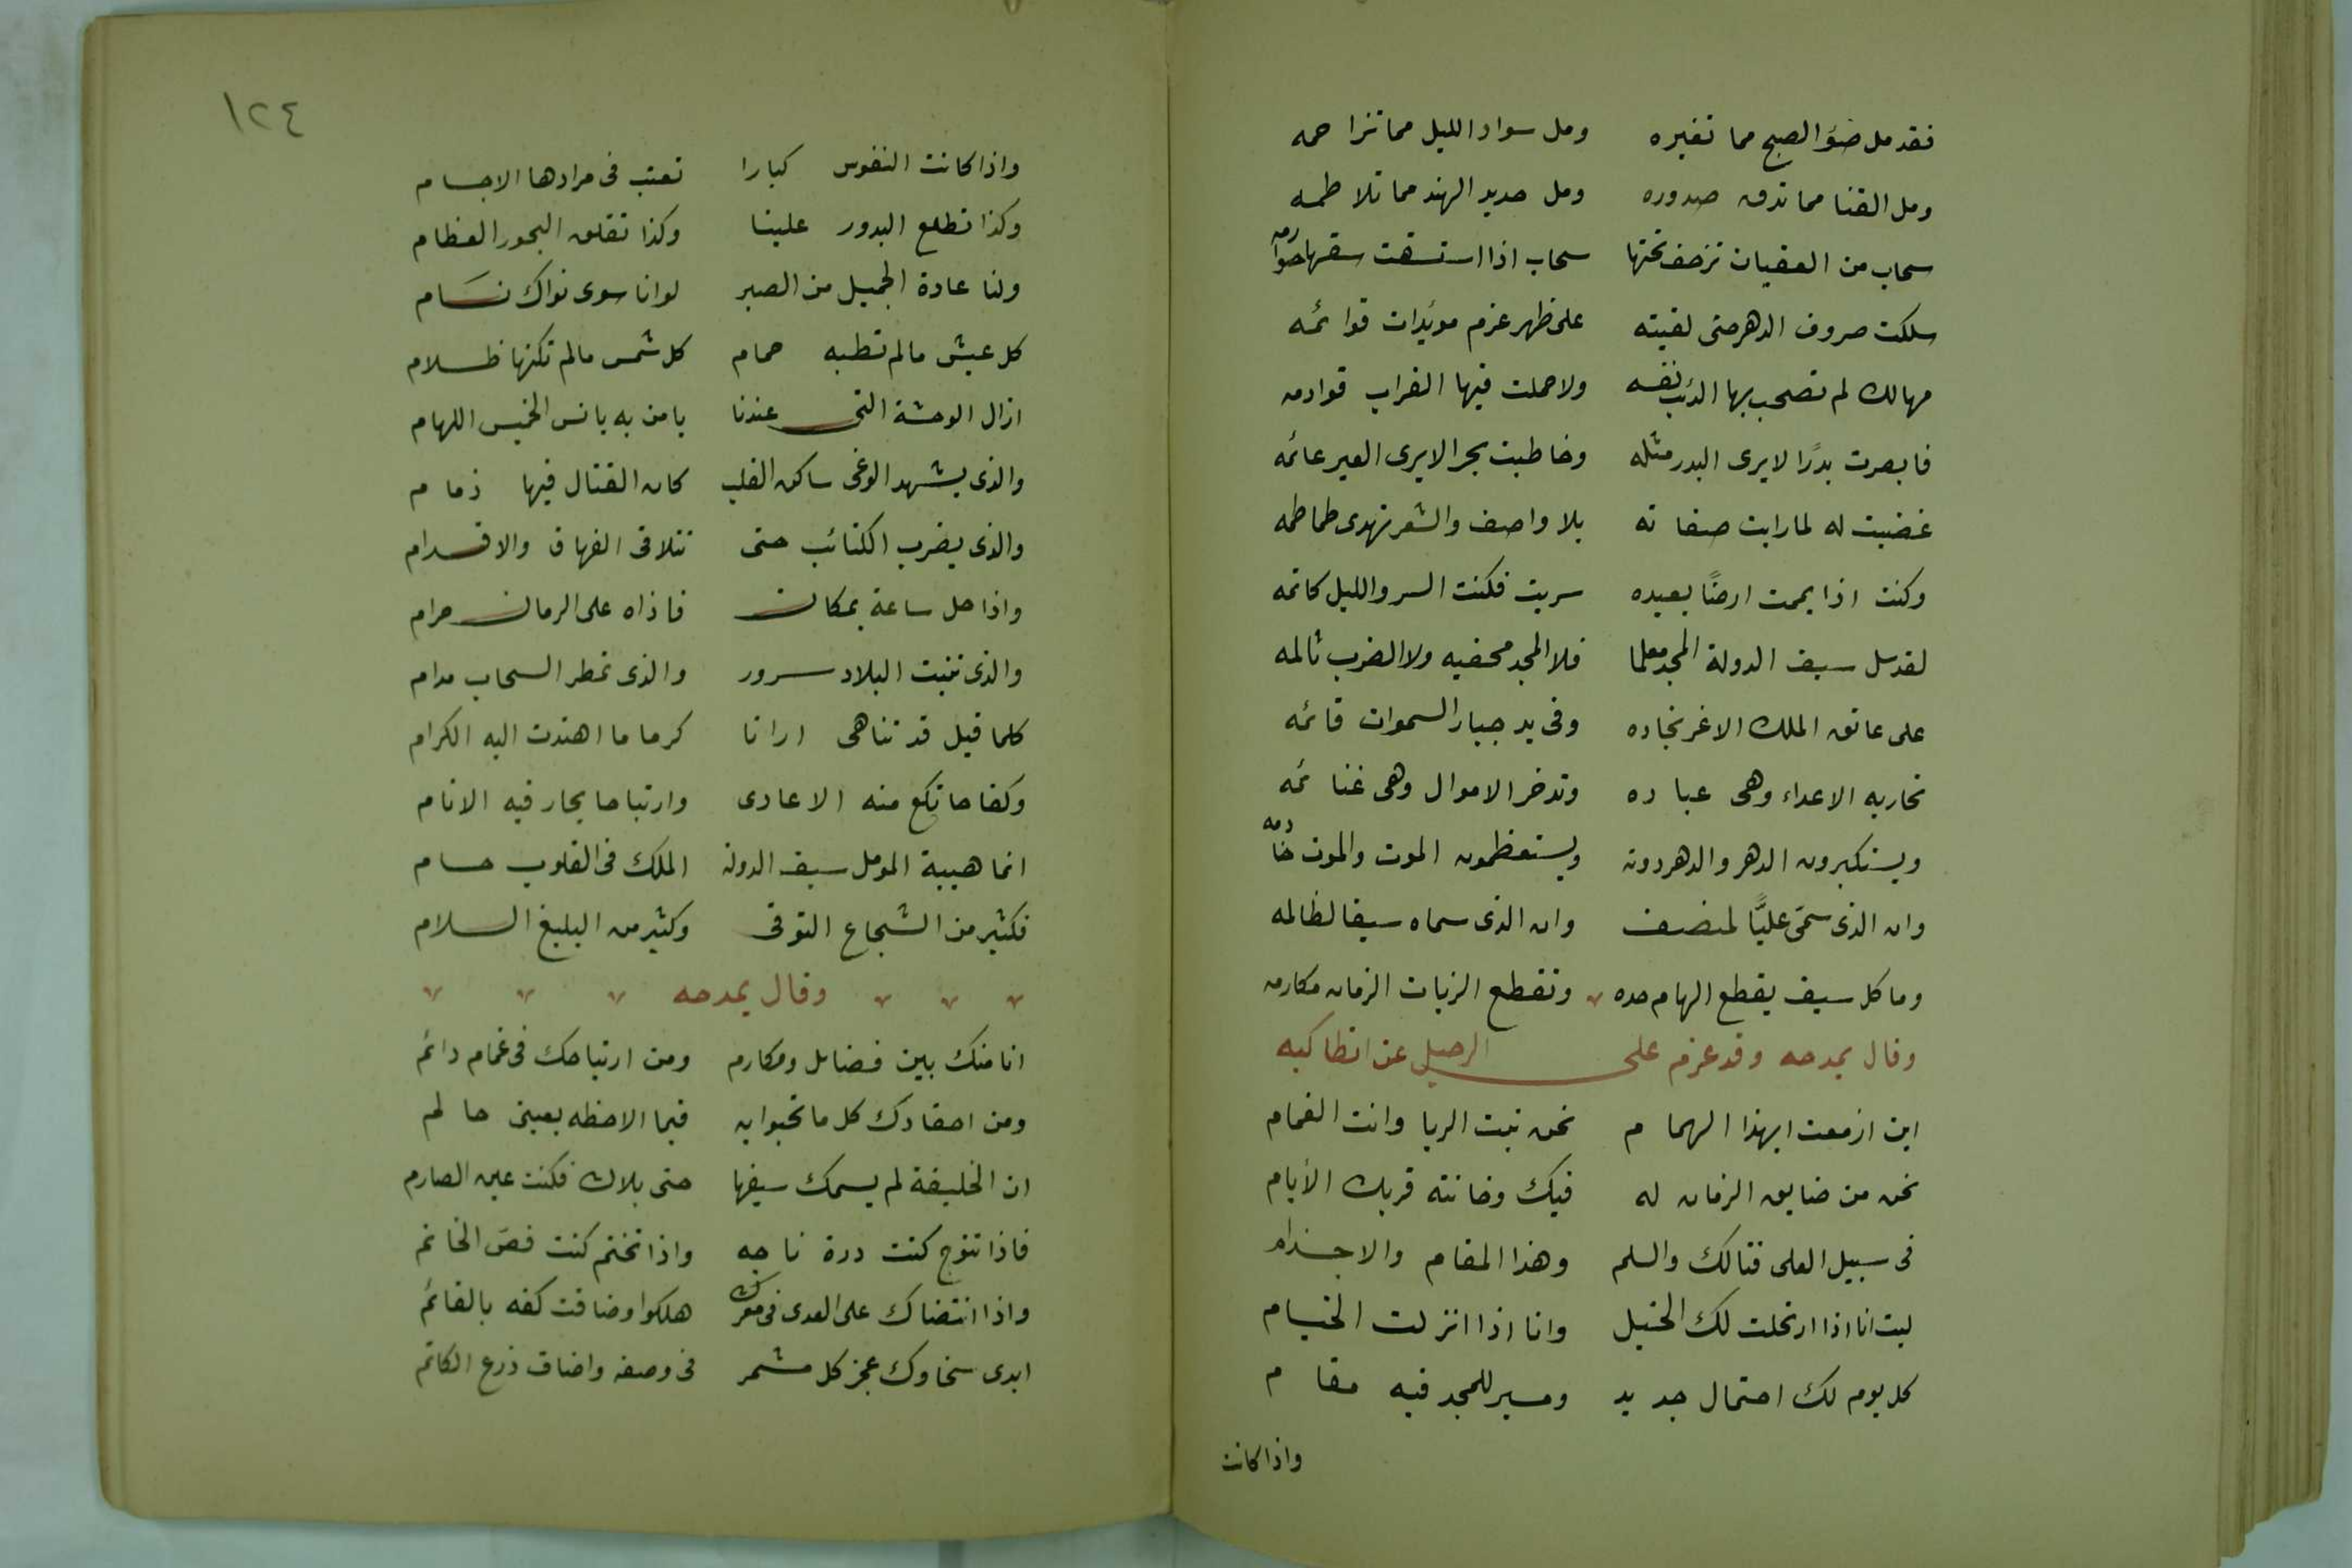 فقد مل ضوء الصبح مما تغيره ومل سواد الليل مما تزاحمه
ومل القنا مما تدق صدوره ومل حديد الهند مما تلاطمه
سحاب من العقبان تزحف تحتها سحاب اذا استسقت سقتها صوارمه
سلكت صروف الدهر حتى لقيته على ظهر عزم مويدات قوائمه
مهالك لم تصحب بها الذئب نفسه ولا حملت فيها الغراب قوادمه
فابصرت بدرًا لا يرى البدر مثله وخاطبت بحرا لا يرى العبر عائمه
غضبت له لما رايت صفاته بلا واصف والشعر تهدى طماطمه
وكنت اذا يممت ارضًا بعيده سريت فكنت السر والليل كاتمه
لقد سل سيف الدولة المجد معلما فلا المجد مخفيه ولا الضرب ثالمه
على عاتق الملك الاغر نجاده وفى يد جبار السموات قائمه
تحاربه الاعداء وهى عباده وتدخر الاموال وهى غنائمه
ويستكبرون الدهر والدهر دونه ويستعظمون الموت والموت خادمه
وان الذى سمّى عليًّا لمنصف وان الذى سماه سيفا لظالمه
وما كل سيف يقطع الهام حده وتقطع لزبات الزمان مكارمه
وقال يمدحه وقد عزم على الرحيل عن انطاكيه
اين ازمعت ايهذا الهمام نحن نبت الربا وانت الغمام
نحن من ضايق الزمان له فيك وخانته قربك الأيام
فى سبيل العلى قتالك والسلم وهذا المقام والاجذام
ليت انا اذا ارتحلت لك الخيل وانا اذا انزلت الخيام
كل يوم لك احتمال جديد ومسير للمجد فيه مقام
واذا كانت
١٢٤
واذا كانت النفوس كبارا تعبت فى مرادها الاجسام
وكذا تطلع البدور علينا وكذا تقلق البحور العظام
ولنا عادة الجميل من الصبر لو انا سوى نواك نسام
كل عيش مالم تطبه حمام كل شمس مالم تكنها ظلام
ازال الوحشة التى عندنا يا من به يانس الخميس اللهام
والذى يشهد الوغى ساكن القلب كان القتال فيها ذمام
والذى يضرب الكتائب حتى تتلاقى الفهاق والاقدام
واذا حل ساعة بمكان فاذاه على الزمان حرام
والذى تنبت البلاد سرور والذى تمطر السحاب مدام
كلما قيل قد تناهى ارانا كرما ما اهتدت اليه الكرام
وكفاحا تكع منه الاعادى وارتياحا يحار فيه الانام
انما هيبة المومل سيف الدولة الملك فى القلوب حسام
فكثير من الشجاع التوقى وكثير من البليغ السلام
وقال يمدحه
انا منك بين فضائل ومكارم ومن ارتياحك فى غمام دائم
ومن احتقارك كل ما تحبوا به فيما الاحظه بعينى حالم
ان الخليفة لم يسمك سيفها حتى بلاك فكنت عين الصارم
فاذا تتوج كنت درة تاجه واذا تختم كنت فصّ الخاتم
واذا انتضاك على العدى فى معرك هلكوا وضاقت كفه بالقائم
ابدى سخاوك عجز كل مشمر فى وصفه واضاق ذرع الكاتم